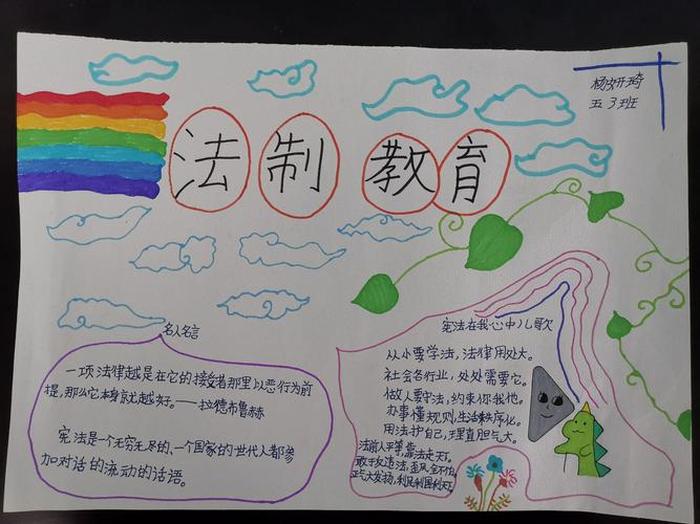 法制教育
杨妍琦
五3班
名人名言
一项法律越是在它的接受者那里以恶行为前
提,那么它本身就越好。——拉德布鲁赫
宪法是一个无穷无尽的,一个国家的世代人都参
加对话的流动的话语。
宪法在我心中儿歌
从小要学法,法律用处大。
社会各行业,处处需要它。
做人要守法,约束你我他。
办事懂规则,生活秩序化。
用法护自己,理直胆气大。
法前人平等,靠法走天下。
敢于反违法,歪风全不怕。
正气大发扬,利民利国利天下。